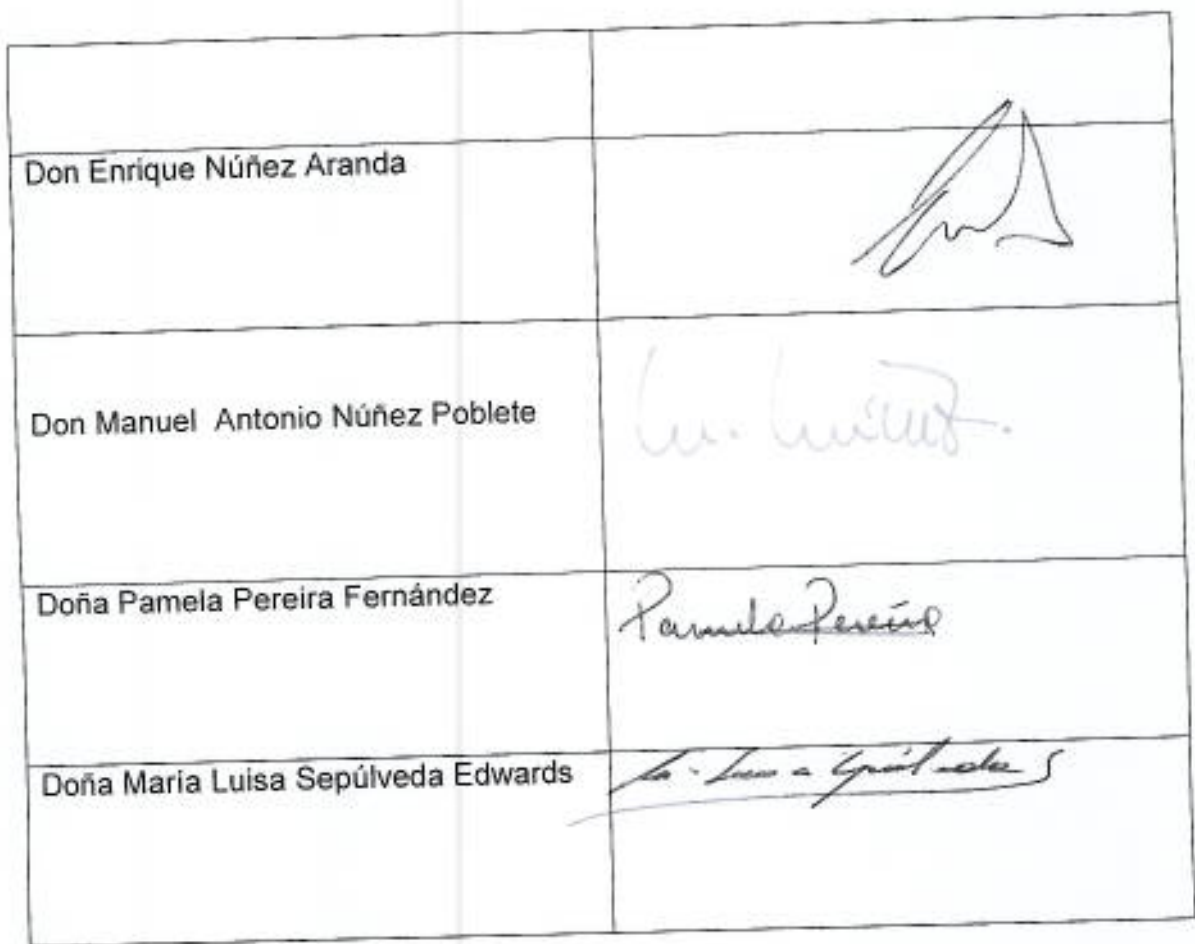 Don Enrique Núñez Aranda
Don Manuel Antonio Núñez Poblete
Doña Pamela Pereira Fernández
Pamela Pereira
Doña María Luisa Sepúlveda Edwards